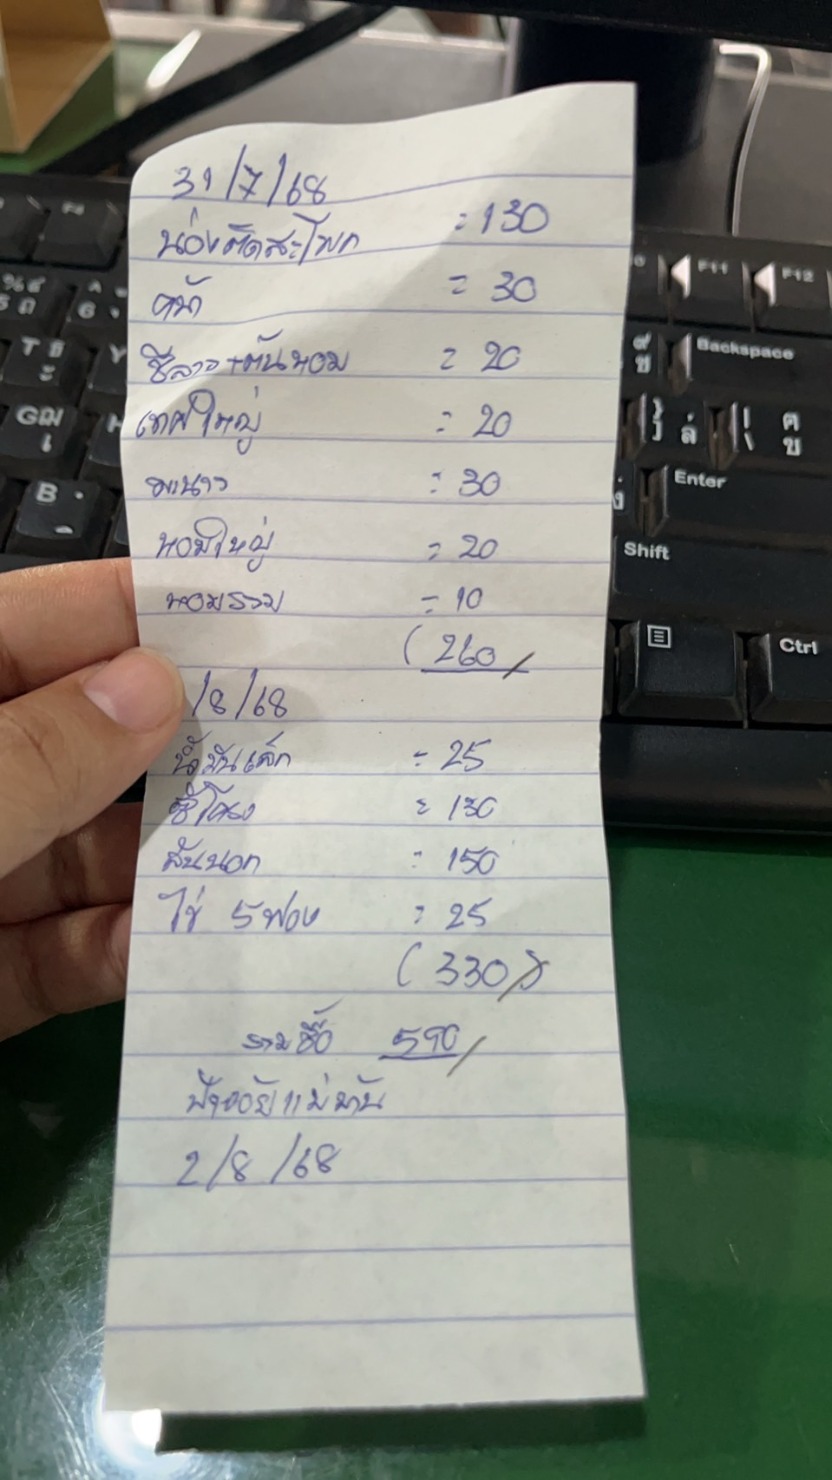 31/7/68
น่องติดสะโพก = 130
คน้า = 30
ชีลาว+ต้นหอม = 20
เทศใหญ่ = 20
มะนาว = 30
หอมใหญ่ = 20
หอมรวม = 10
(260/
/8/68
น้ำมันเล็ก = 25
ซี่โครง = 130
สันนอก = 150
ไข่ 5 ฟอง = 25
(330/)
รวมซื้อ 590/
2/8/68
F11
F12
Backspace
Enter
Shift
Ctrl
T
Y
G
H
B